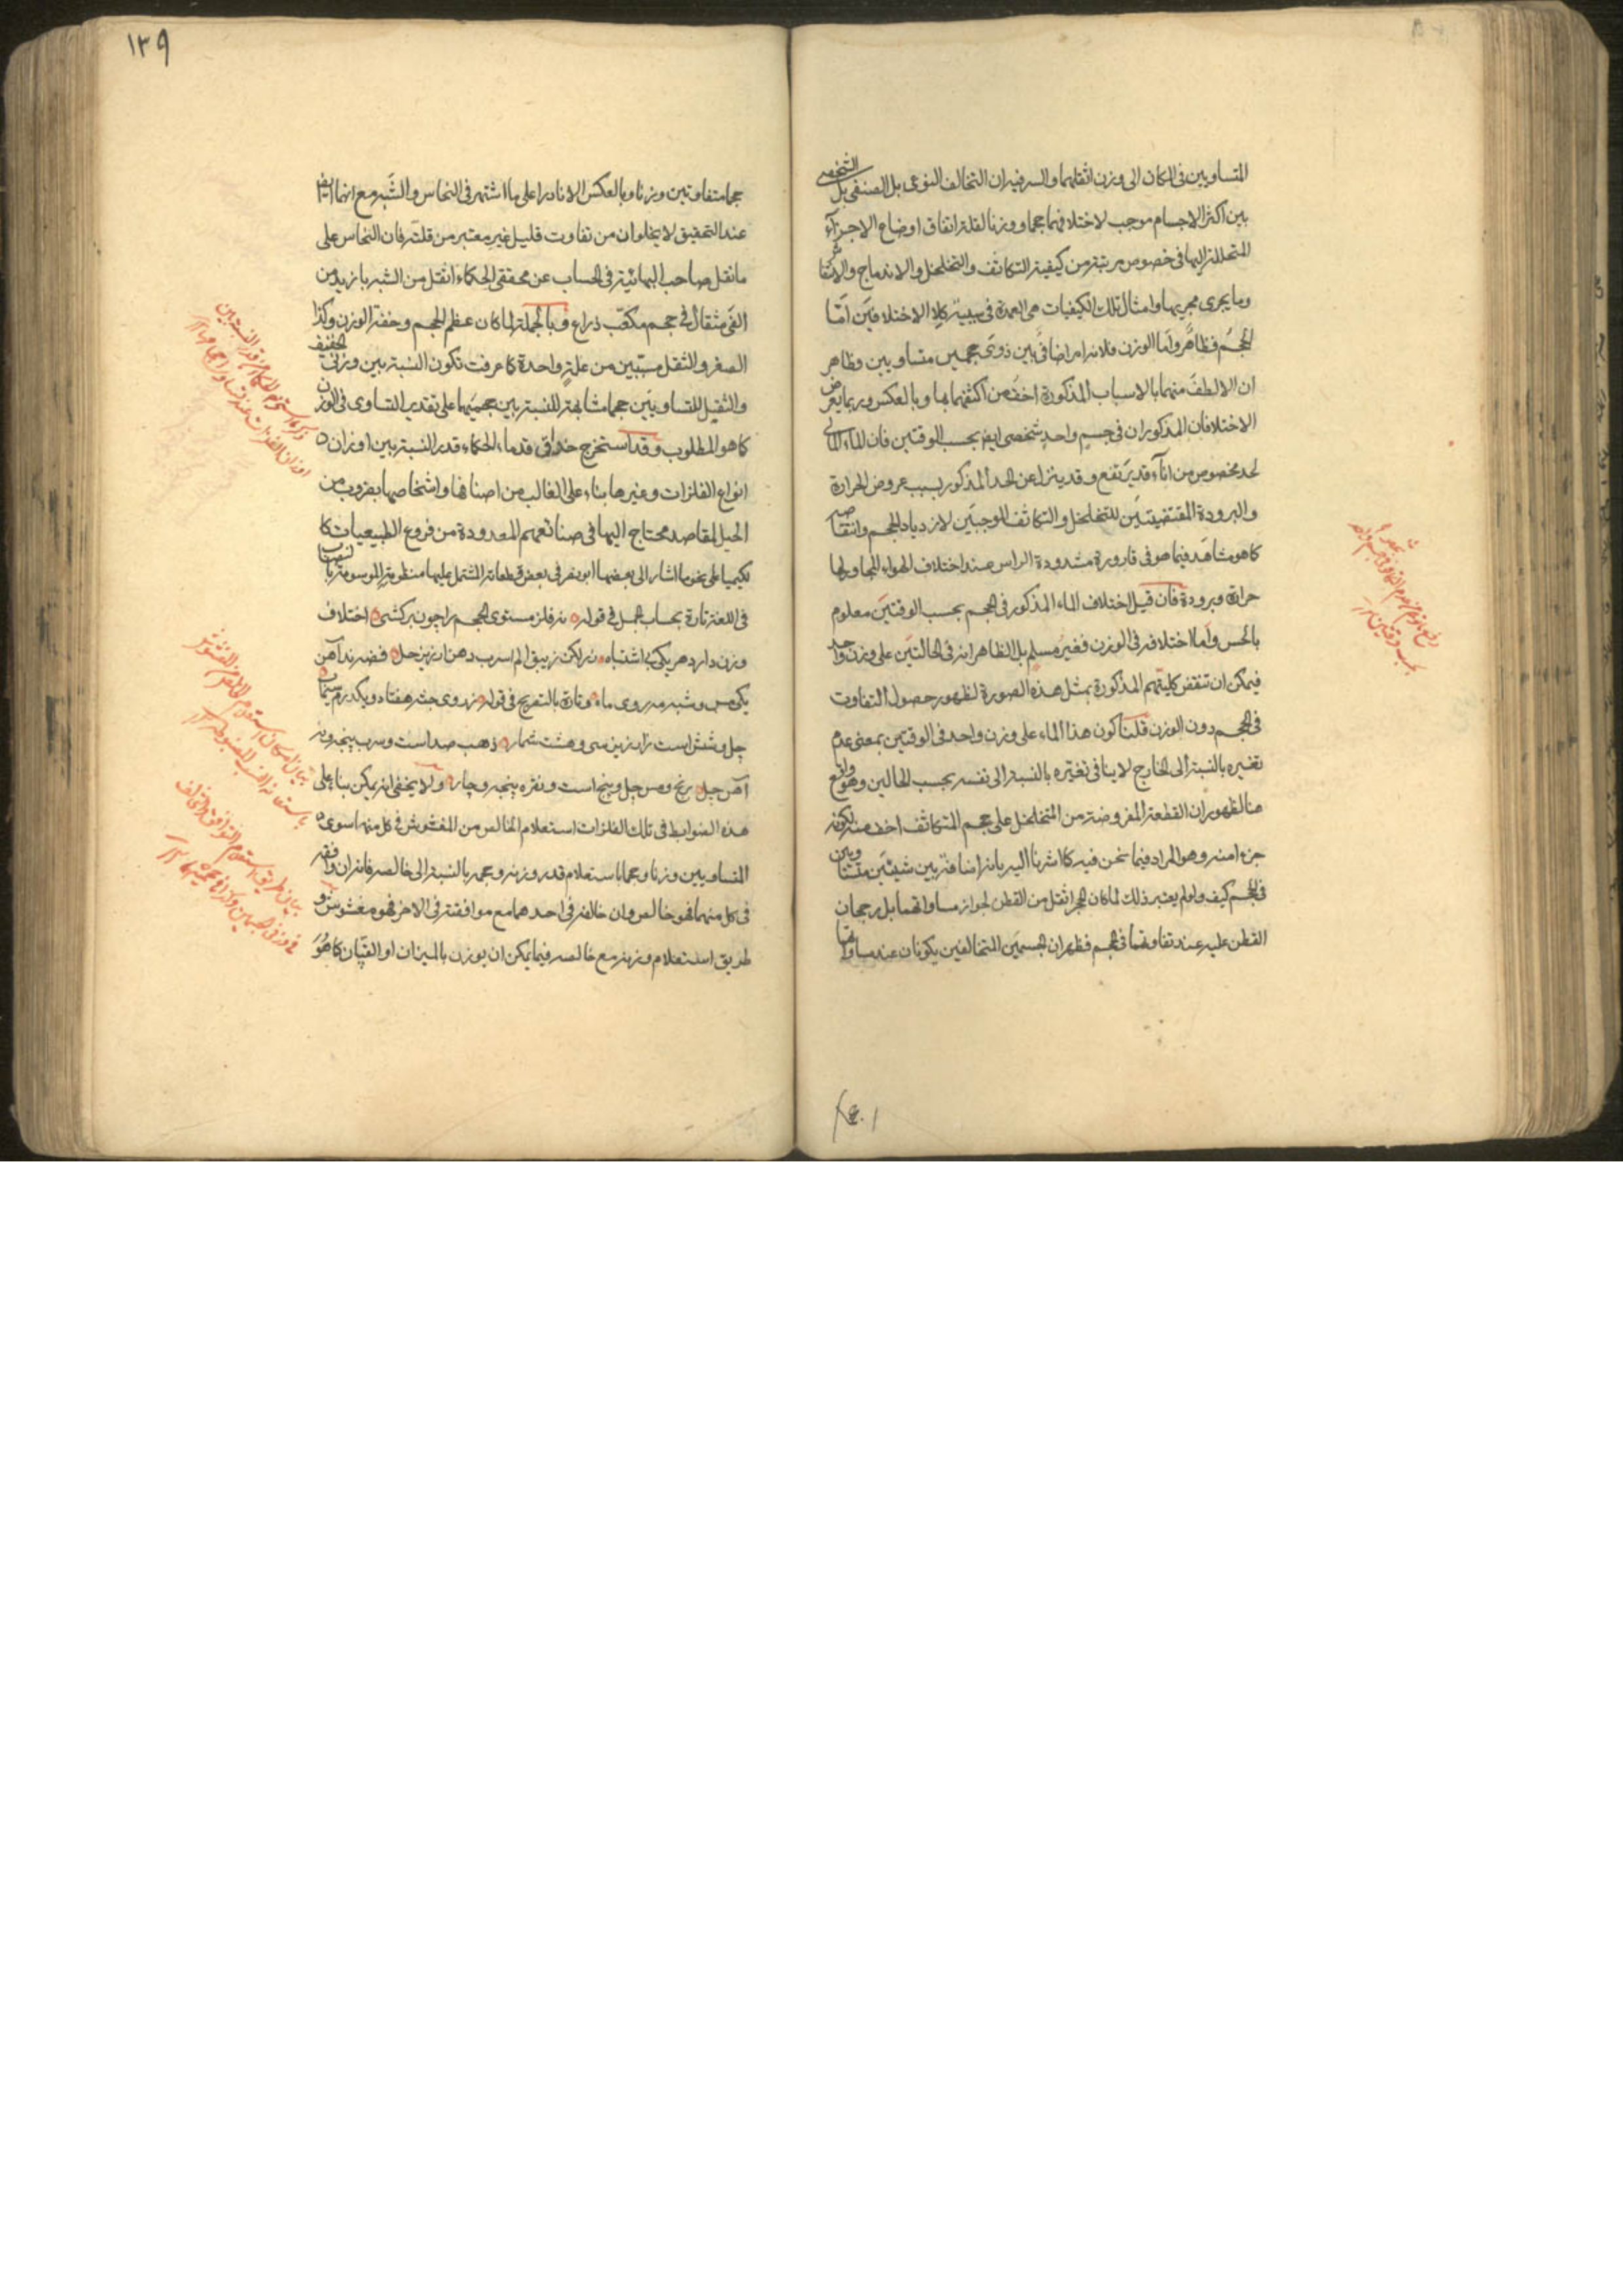 المتساويين في المكان الى وزن اثقلهما والسر فيه ان التخالف النوعى بل الصنفى بل الشخصى
بين اكثر الاجسام موجب لاختلافهما حجما ووزنا لقلة اتفاق اوضاع الاجزآء
المتحللة اليها في خصوص مرتبة من كيفية التكاثف والتخلخل والاندماج والانتفاش
وما يجرى مجريها وامثال تلك الكيفيات هى العمدة في سببية كلا الاختلافين امّا
الحجم فظاهر وامّا الوزن فلانه امر اضافى بين ذوى حجمين متساويين وظاهر
ان الالطف منهما بالاسباب المذكورة اخف من اكثفهما بها وبالعكس وربما يعرض
الاختلافان المذكوران في جسم واحد شخصى ايضا بحسب الوقتين فان الماء المالى
لحد مخصوص من انآء قد يرتفع وقد ينزل عن الحد المذكور بسبب عروض الحرارة
والبرودة المقتضيتين للتخلخل والتكاثف الموجبين لازدياد الحجم وانتقاصه
كما هو مشاهد فيما هو في قارورة مشدودة الراس عند اختلاف الهواء المجاور لها
حرارة وبرودة فان قيل اختلاف الماء المذكور في الحجم بحسب الوقتين معلوم
بالحس واما اختلافه في الوزن فغير مسلم بل الظاهر انه في الحالتين على وزن واحد
فيمكن ان تنقض كليتهم المذكورة بمثل هذه الصورة لظهور حصول التفاوت
في الحجم دون الوزن قلنا كون هذا الماء على وزن واحد في الوقتين بمعنى عدم
تغيره بالنسبة الى الخارج لا ينافى تغيّره بالنسبة الى نفسه بحسب الحالين وهو واقع
هنا لظهور ان القطعة المفروضة من المتخلخل على حجم المتكاثف اخف منه لكونه
جزءا منه وهو المراد فيما نحن فيه كما اشرنا اليه بانه اضافة بين شيئين متساويين
في الحجم كيف ولو لم يعتبر ذلك لما كان الحجر اثقل من القطن لجواز مساواتهما بل رجحان
القطن عليه عند تفاوتهما في الحجم فظهر ان الجسمين المتخالفين يكونان عند تساويهما
١٣٩
حجما متفاوتين وزنا وبالعكس الا نادرا على ما اشتهر في النحاس والشبه مع انهما ايضا
عند التحقيق لا يخلوان من تفاوت قليل غير معتبر من قلته فان النحاس على
ما نقل صاحب البهائية في الحساب عن محققى الحكماء اثقل من الشبه بازيد من
الفى مثقال في حجم مكعّب ذراع وبالجملة لما كان عظم الحجم وخفة الوزن وكذا
الصغر والثقل مسبّبين من علة واحدة كما عرفت تكون النسبة بين وزنى الخفيف
والثقيل المتساويين حجما مشابهة للنسبة بين حجميهما على تقدير التساوى في الوزن
كما هو المطلوب وقد استخرج حذاق قدماء الحكماء قدر النسبة بين اوزان
انواع الفلزات وغيرها بناء على الغالب من اصنافها واشخاصها بضروب من
الحيل لمقاصد محتاج اليها في صنائعهم المعدودة من فروع الطبيعيات كا
لكيميا على نحو ما اشار الى بعضها ابو نصر في بعض قطعاته المشتمل عليها منظومته الموسومة بنصاب
في اللغة تارة بحساب الجمل في قوله نه فلز مستوى الحجم را چون بركشى اختلاف
وزن دارد هر يكى بى اشتباه زر لكن زيبق الم اسرب دهن ارزيز حل فضه ند آهن
يكى مس وشبه مه روى ماه وتارة بالتصريح في قوله ز روى جثه هفتاد ويكدرم سيماب
چل وشش است زارزيز سى وهشت شمار ذهب صد است وسرب پنجه ونه
آهن چل برنج ومس چل وپنج است ونقره پنجه وچار ولا يخفى انه يمكن بناء على
هذه الضوابط في تلك الفلزات استعلام الخالص من المغشوش في كل منها سوى
المتساويين وزنا وحجما باستعلام قدر وزنه وحجمه بالنسبة الى خالصه فانه ان وافقه
في كل منهما فهو خالص وان خالفه في احدهما مع موافقته في الاخر فهو مغشوش و
طريق استعلام وزنه مع خالصه فيما يمكن ان يوزن بالميزان او القپان كما هو